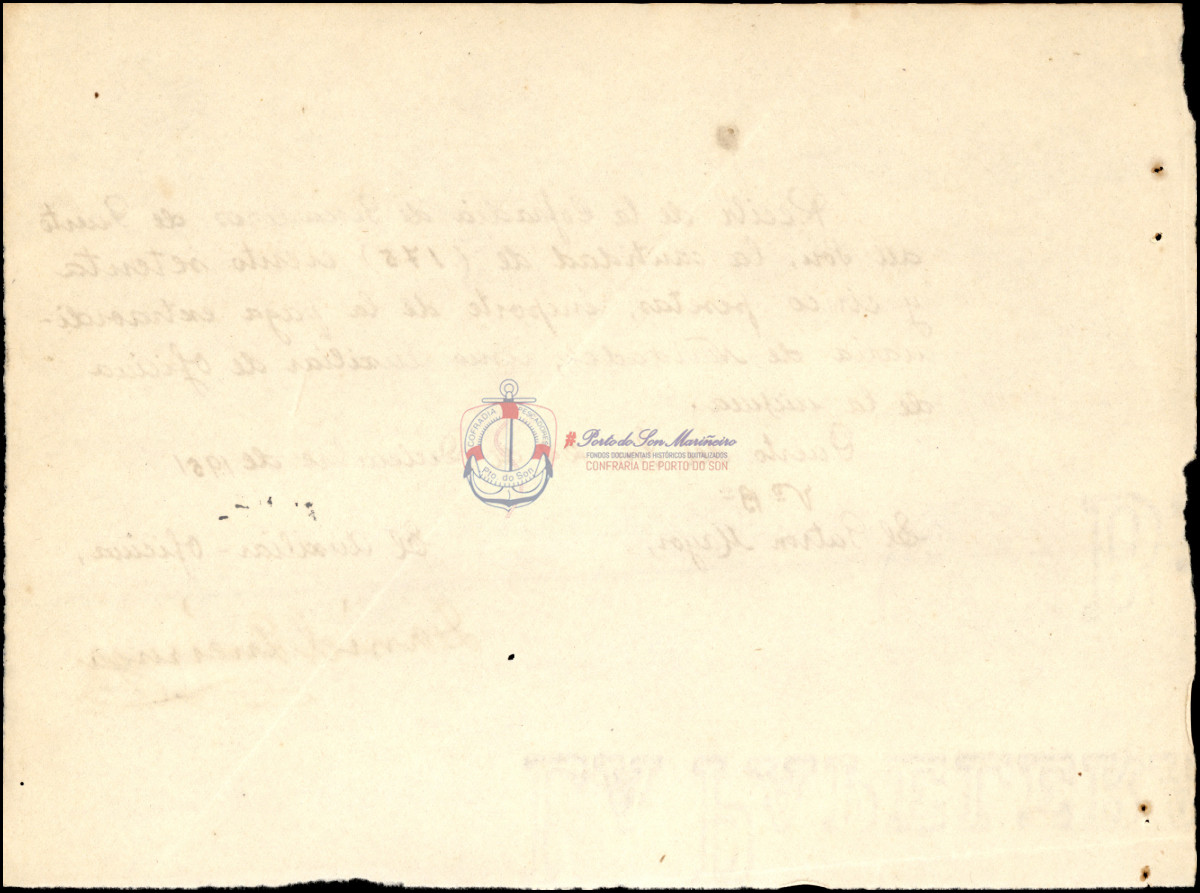 Recibí de la Cofradia de Pescadores de Puerto
del Son, la cantidad de (175) ciento setenta
y cinco pesetas, importe de la paga extraordi-
naria de Navidad, como Auxiliar de Oficina
de la misma.
Puerto de Diciembre de 1951
Vº Bº
El Patron Mayor, El Auxiliar-Oficina,
COFRADIA PESCADORES
Pto. do Son
#Porto do Son Mariñeiro
FONDOS DOCUMENTAIS HISTÓRICOS DIXITALIZADOS
CONFRARIA DE PORTO DO SON